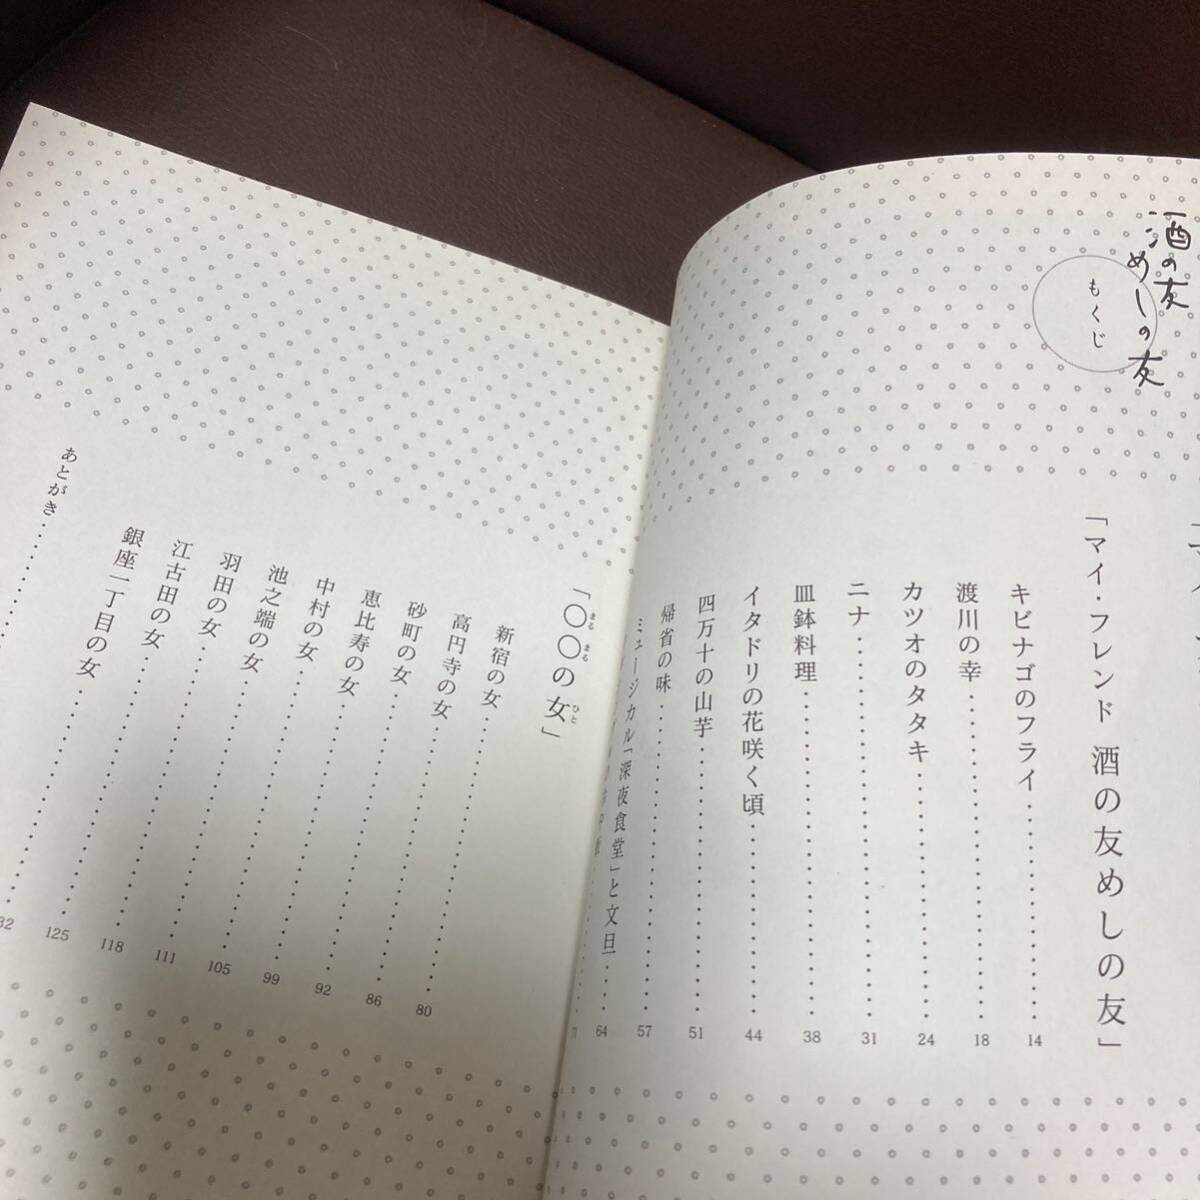 酒の友
めしの友
もくじ
「マイ・フレンド 酒の友めしの友」
キビナゴのフライ……14
渡川の幸……18
カツオのタタキ……24
ニナ……31
皿鉢料理……38
イタドリの花咲く頃……44
四万十の山芋……51
帰省の味……57
ミュージカル「深夜食堂」と文旦……64
71
「〇〇の女」
まる まる ひと
新宿の女……80
高円寺の女……86
砂町の女……92
恵比寿の女……99
中村の女……105
池之端の女……111
羽田の女……118
江古田の女……125
銀座一丁目の女……32
あとがき……